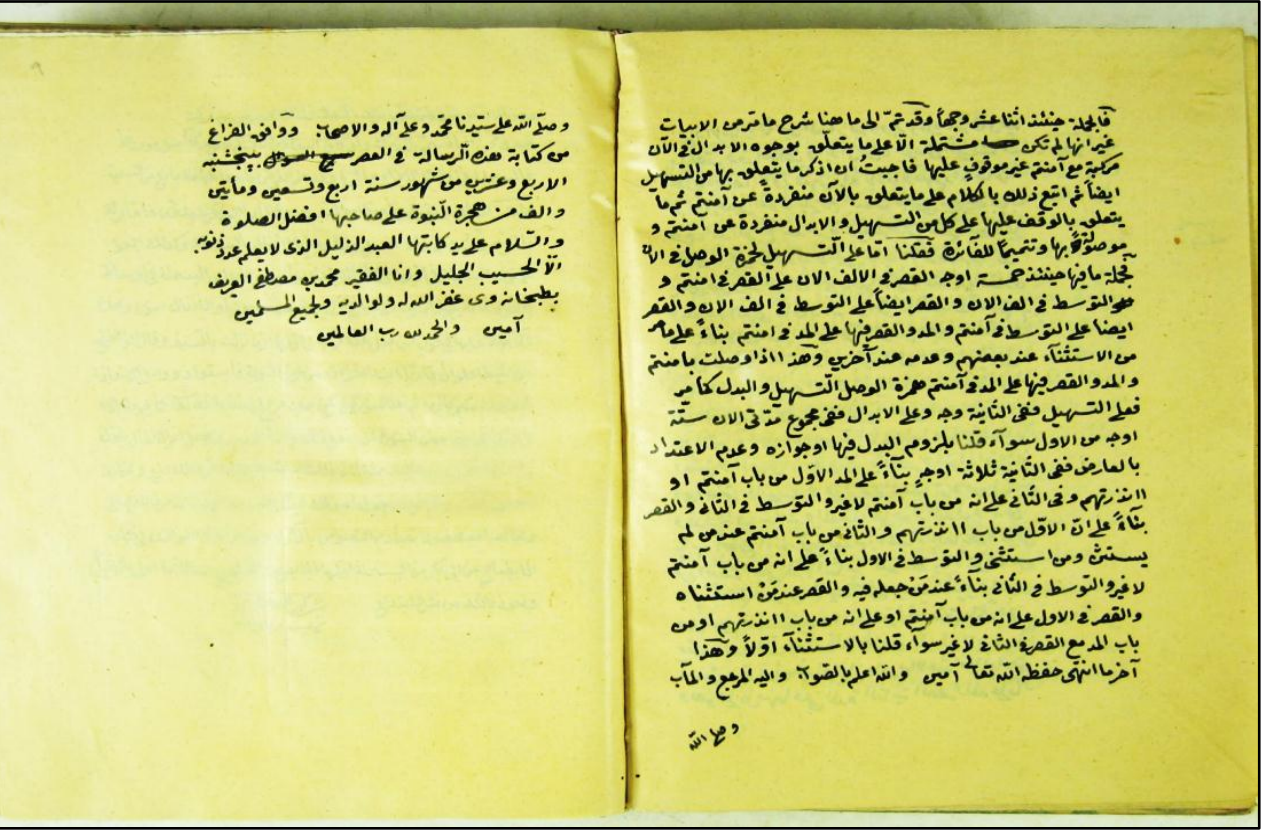 فالجملة حينئذ اثنا عشر وجهاً وقد تم الى ما هنا شرح ما مر من الابيات
غير انها لم تكن مشتملة الّا على ما يتعلق بوجوه الابدال فى الآن
مركبة مع آمنتم غير موقوف عليها فاحببت ان اذكر ما يتعلق بها من التسهيل
ايضاً ثم اتبع ذلك بالكلام على ما يتعلق بالآن منفردةً عن آمنتم ثم ما
يتعلق بالوقف عليها على كل من التسهيل والابدال منفردة عن آمنتم و
موصولة بها وتتميماً للفائدة فقلنا امّا على التسهيل لهمزة الوصل فى الآن
فجملة ما فيها حينئذ خمسة اوجه القصر فى الالف الان على القصر فى امنتم و
التوسط فى الف الان والقصر ايضاً على التوسط فى الف الان والقصر
ايضا على التوسط فى آمنتم والمد والقصر فيها على المد فى امنتم بناءً على ما مر
من الاستثنآء عند بعضهم وعدمه عند آخرين وهذا اذا وصلت بامنتم
والمد والقصر فيها على المد فى آمنتم همزة الوصل التسهيل والبدل كما مر
فعلى التسهيل ففى الثانية وجه وعلى الابدال ففى مجموع مدتى الان ستّة
اوجه من الاول سوآء قلنا بلزوم البدل فيها او جوازه وعدم الاعتداد
بالعارض ففى الثانية ثلاثة اوجهٍ بناًءً على المد الاوّل من باب آمنتم او
اانذرتهم وفى الثانى على انه من باب آمنتم لا غير والتوسط فى الثانى والقصر
بناءً على انّ الاوّل من باب اانذرتهم والثانى من باب آمنتم عند من لم
يستثن ومن استثنى والتوسط فى الاول بناءً على انه من باب آمنتم
لا غير والتوسط فى الثانى بناءً عند مَن جعله فيه والقصر عند مَنْ استثناه
والقصر فى الاول على انه من باب آمنتم او على انه من باب اانذرتهم او من
باب المد مع القصر فى الثانى لا غير سواء قلنا بالاستثنآء اوّلاً وهذا
آخر ما انتهى حفظه الله تعالى آمين والله اعلم بالصواب واليه المرجع والمآب
وصلى الله
وصلّى الله على سيّدنا محمّد وعلى آله والاصحاب ووافق الفراغ
من كتابة هذه الرسالة فى العصر بينجشنبه
الاربع وعشرين من شهور سنة اربع وتسعين ومأيتى
والف من هجرة النبوة على صاحبها افضل الصلوة
والسّلام على يد كاتبها العبد الذليل الذى لا يعلم عدد ذنوبه
الّا الحسيب الجليل وانا الفقير محمد بن مصطفى العريف
بطبخانه وى غفر الله له ولوالديه ولجميع المسلمين
آمين والحمد لله رب العالمين